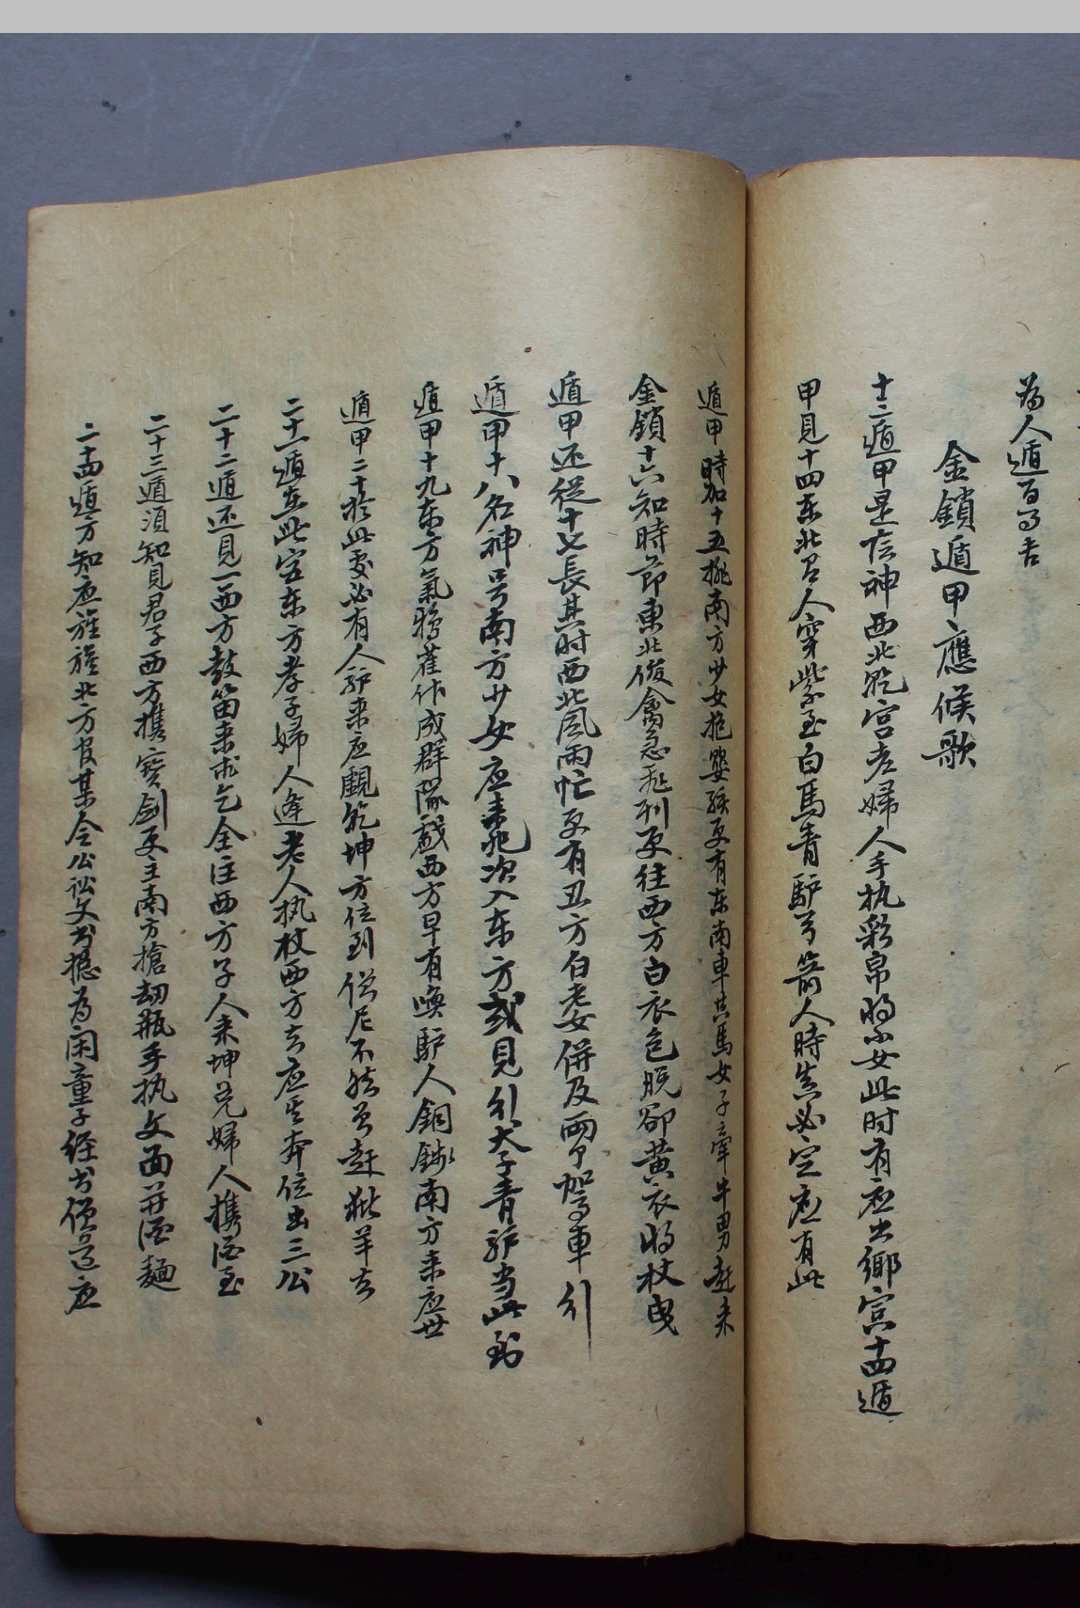 為人遁百事吉
金鎖遁甲應候歌
十三遁甲是陰神西北乾宮老婦人手执彩帛将少女此时有应出鄉宾十四遁
甲見十四东北君人穿紫至白馬青馿弓箭人時生必定应有此
遁甲時加十五挑南方少女抱嬰孩更有东南車共馬女子牽牛男赶来
金鎖十六知時節東北飛禽急飛到更往西方白衣色脱郤黄衣将杖曳
遁甲还從十七長其时西北風雨忙更有丑方白老女併及兩个駕車引
遁甲十八名神号南方少女应来兆次入东方或見引犬子青馿当此到
遁甲十九东方氣鴉雀作成群隊戯西方早有喚馿人銅錢南方来应世
遁甲二十於此要必有人馿来应覩乾坤方位到僧尼不然多赶猪羊去
二十一遁在此宮东方孝子婦人逢老人执杖西方去应生奔位出三公
二十二遁还見一西方鼓笛来求乞全往西方子人来坤兑婦人携酒至
二十三遁須知見君子西方携寶劍更主南方搶劫瓶手执文面并酒麵
二十四遁方知应旌旗北方官某令公訟文书總为闲童子经书僧道应